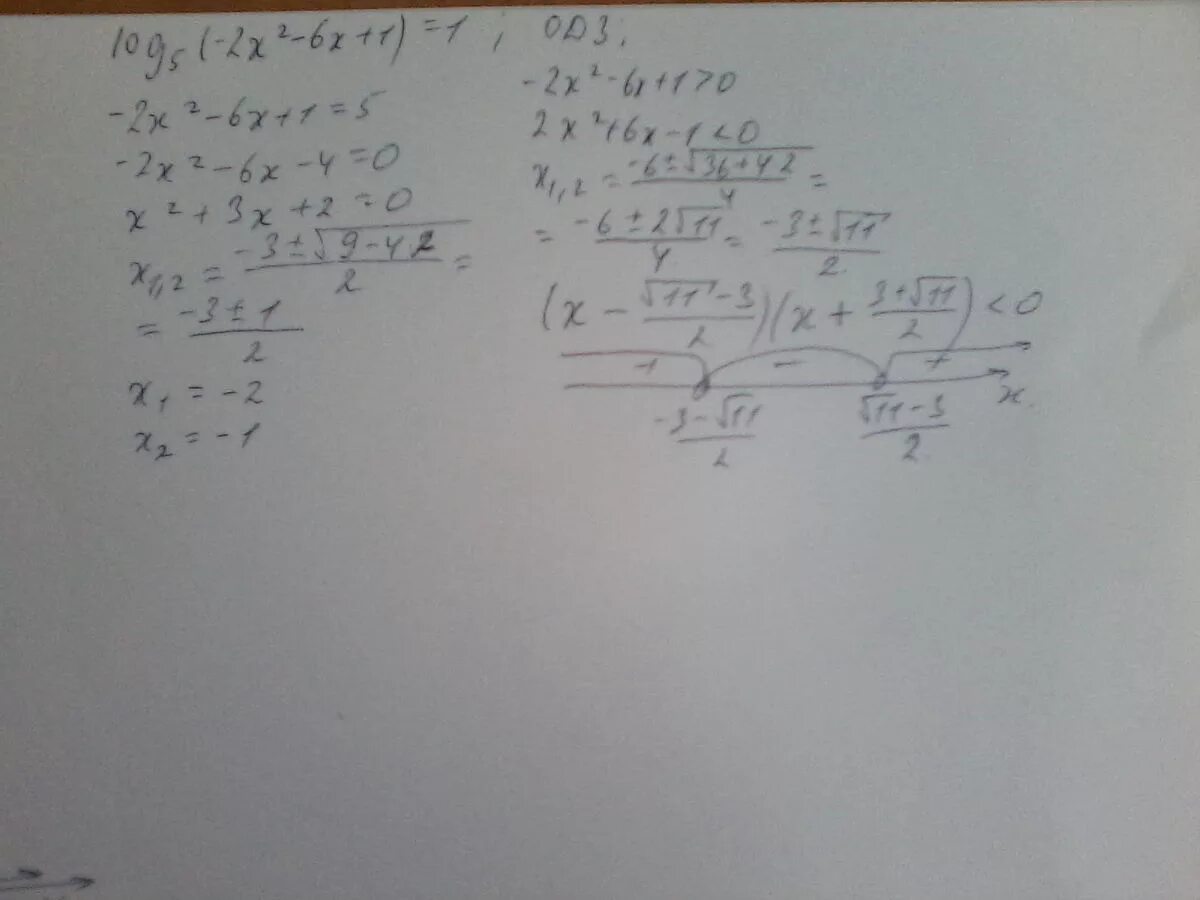 log₅(-2x²-6x+1)=1 ; ОДЗ:
-2x²-6x+1=5
-2x²-6x-4=0
x²+3x+2=0
x₁,₂ = (-3±√(9-4·2))/2 =
= (-3±1)/2
x₁ = -2
x₂ = -1
-2x²-6x+1>0
2x²+6x-1<0
x₁,₂ = (-6±√(36+4·2))/4 =
= (-6±2√11)/4 = (-3±√11)/2
(x - (√11-3)/2)(x + (3+√11)/2) < 0
+ - +
(-3-√11)/2 (√11-3)/2 x